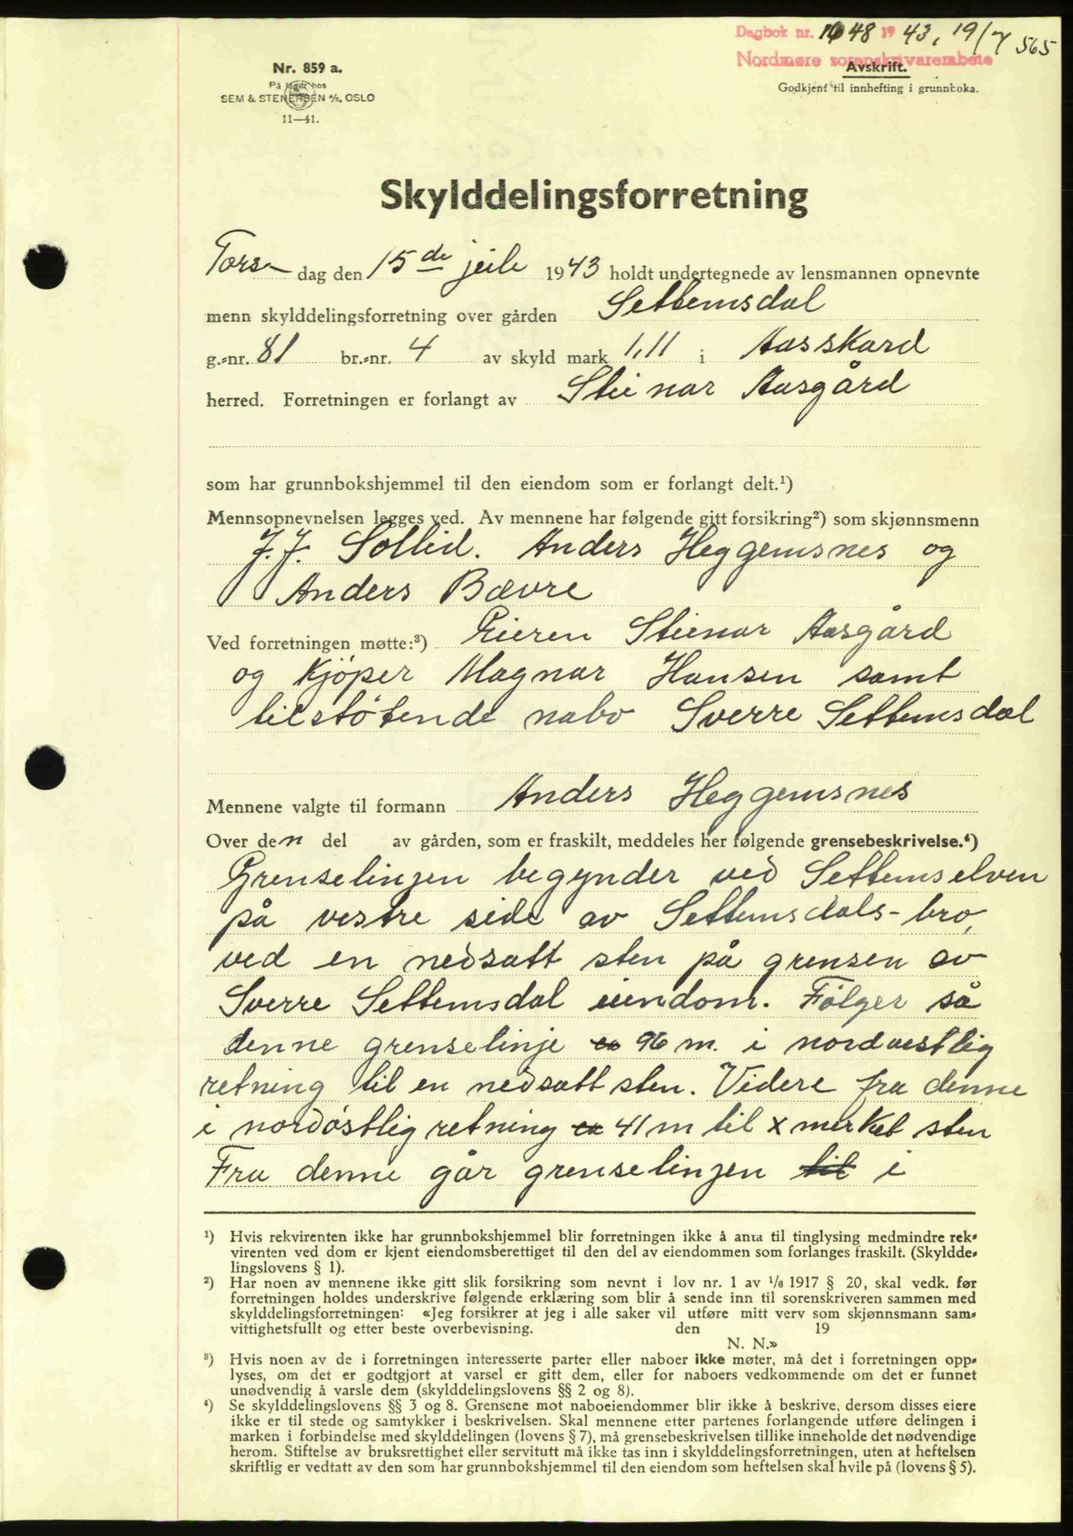 Dagbok nr. 1648 1943, 19/7 565
Nordmøre sorenskrivarembete
Avskrift.
Godkjent til innhefting i grunnboka.
Nr. 859 a.
På lager hos
SEM & STENERSEN A/S. OSLO
11—41.
Skylddelingsforretning
Tors- dag den 15de juli 1943 holdt undertegnede av lensmannen opnevnte
menn skylddelingsforretning over gården Settemsdal
g.-nr. 81 br.-nr. 4 av skyld mark 1,11 i Aasskard
herred. Forretningen er forlangt av Steinar Aasgård
som har grunnbokshjemmel til den eiendom som er forlangt delt.¹)
Mennsopnevnelsen legges ved. Av mennene har følgende gitt forsikring²) som skjønnsmenn
J. J. Sollid. Anders Heggemsnes og
Anders Bævre
Ved forretningen møtte:³) Eieren Steinar Aasgård
og Kjöper Magnar Hansen samt
tilstötende nabo Sverre Settemsdal
Mennene valgte til formann Anders Heggemsnes
Over den del av gården, som er fraskilt, meddeles her følgende grensebeskrivelse.⁴)
Grenselinjen begynder ved Settemselven
på vestre side av Settemsdals-bro,
ved en nedsatt sten på grensen av
Sverre Settemsdal eiendom. Fölger så
denne grenselinje ca 96 m. i nordvestlig
retning til en nedsatt sten. Videre fra denne
i nordöstlig retning ca 41 m til x merket sten
Fra denne går grenselinjen til i
¹) Hvis rekvirenten ikke har grunnbokshjemmel blir forretningen ikke å anta til tinglysing medmindre rek-
virenten ved dom er kjent eiendomsberettiget til den del av eiendommen som forlanges fraskilt. (Skyldde-
lingslovens § 1).
²) Har noen av mennene ikke gitt slik forsikring som nevnt i lov nr. 1 av 1/6 1917 § 20, skal vedk. før
forretningen holdes underskrive følgende erklæring som blir å sende inn til sorenskriveren sammen med
skylddelingsforretningen: «Jeg forsikrer at jeg i alle saker vil utføre mitt verv som skjønnsmann sam-
vittighetsfullt og etter beste overbevisning. den 19
N. N.»
³) Hvis noen av de i forretningen interesserte parter eller naboer ikke møter, må det i forretningen opp-
lyses, om det er godtgjort at varsel er gitt dem, eller for naboers vedkommende om det er funnet
unødvendig å varsle dem (skylddelingslovens §§ 2 og 8).
⁴) Se skylddelingslovens §§ 3 og 8. Grensene mot naboeiendommer blir ikke å beskrive, dersom disses eiere
ikke er til stede og samtykker i beskrivelsen. Skal mennene etter partenes forlangende utføre delingen i
marken i forbindelse med skylddelingen (lovens § 7), må grensebeskrivelsen tillike inneholde det nødvendige
herom. Stiftelse av bruksrettighet eller servitutt må ikke tas inn i skylddelingsforretningen, uten at heftelsen
skriftlig er vedtatt av den som har grunnbokshjemmel til den eiendom som heftelsen skal hvile på (lovens § 5).